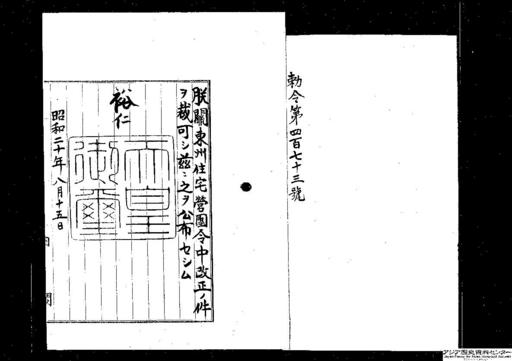 勅令第四百七十三號
朕關東州住宅營團令中改正ノ件
ヲ裁可シ茲ニ之ヲ公布セシム
裕仁
天皇御璽
昭和二十年八月十五日
アジア歴史資料センター